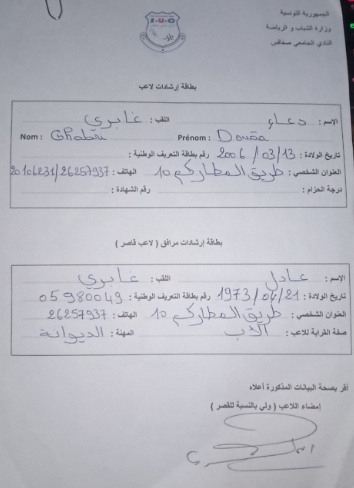 الجمهورية التونسية
وزارة الشباب و الرياضة
النادي الجامعي صفاقس
بطاقة إرشادات لاعب
الإسم : دعاء اللقب : غابري
Nom : Ghabri Prénom : Douaa
تاريخ الولادة : 2006 / 03 / 13 رقم بطاقة التعريف الوطنية :
العنوان الشخصي : طريق المطار كم 10 الهاتف : 20106231/26257937
درجة الحزام : رقم الشهادة :
بطاقة إرشادات مرافق ( لاعب قاصر )
الإسم : عادل اللقب : غابري
تاريخ الولادة : 1973/04/21 رقم بطاقة التعريف الوطنية : 05980049
العنوان الشخصي : طريق المطار كم 10 الهاتف : 26257937
صفة القرابة للاعب : الأب المهنة : الديوانة
أقر بصحة البيانات المذكورة أعلاه
إمضاء اللاعب ( ولي بالنسبة للقصر )